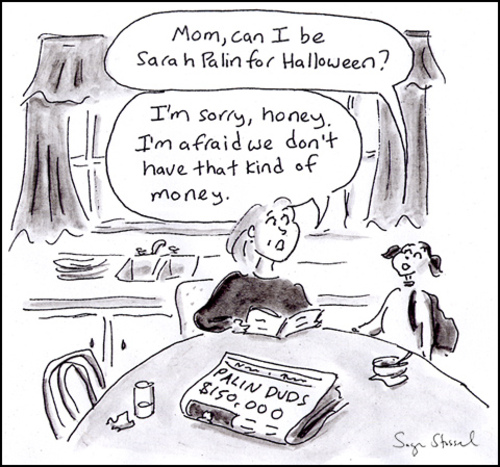 Mom, can I be
Sarah Palin for Halloween?
I'm sorry, honey.
I'm afraid we don't
have that kind of
money.
PALIN DUDS
$150,000
Sage Stossel